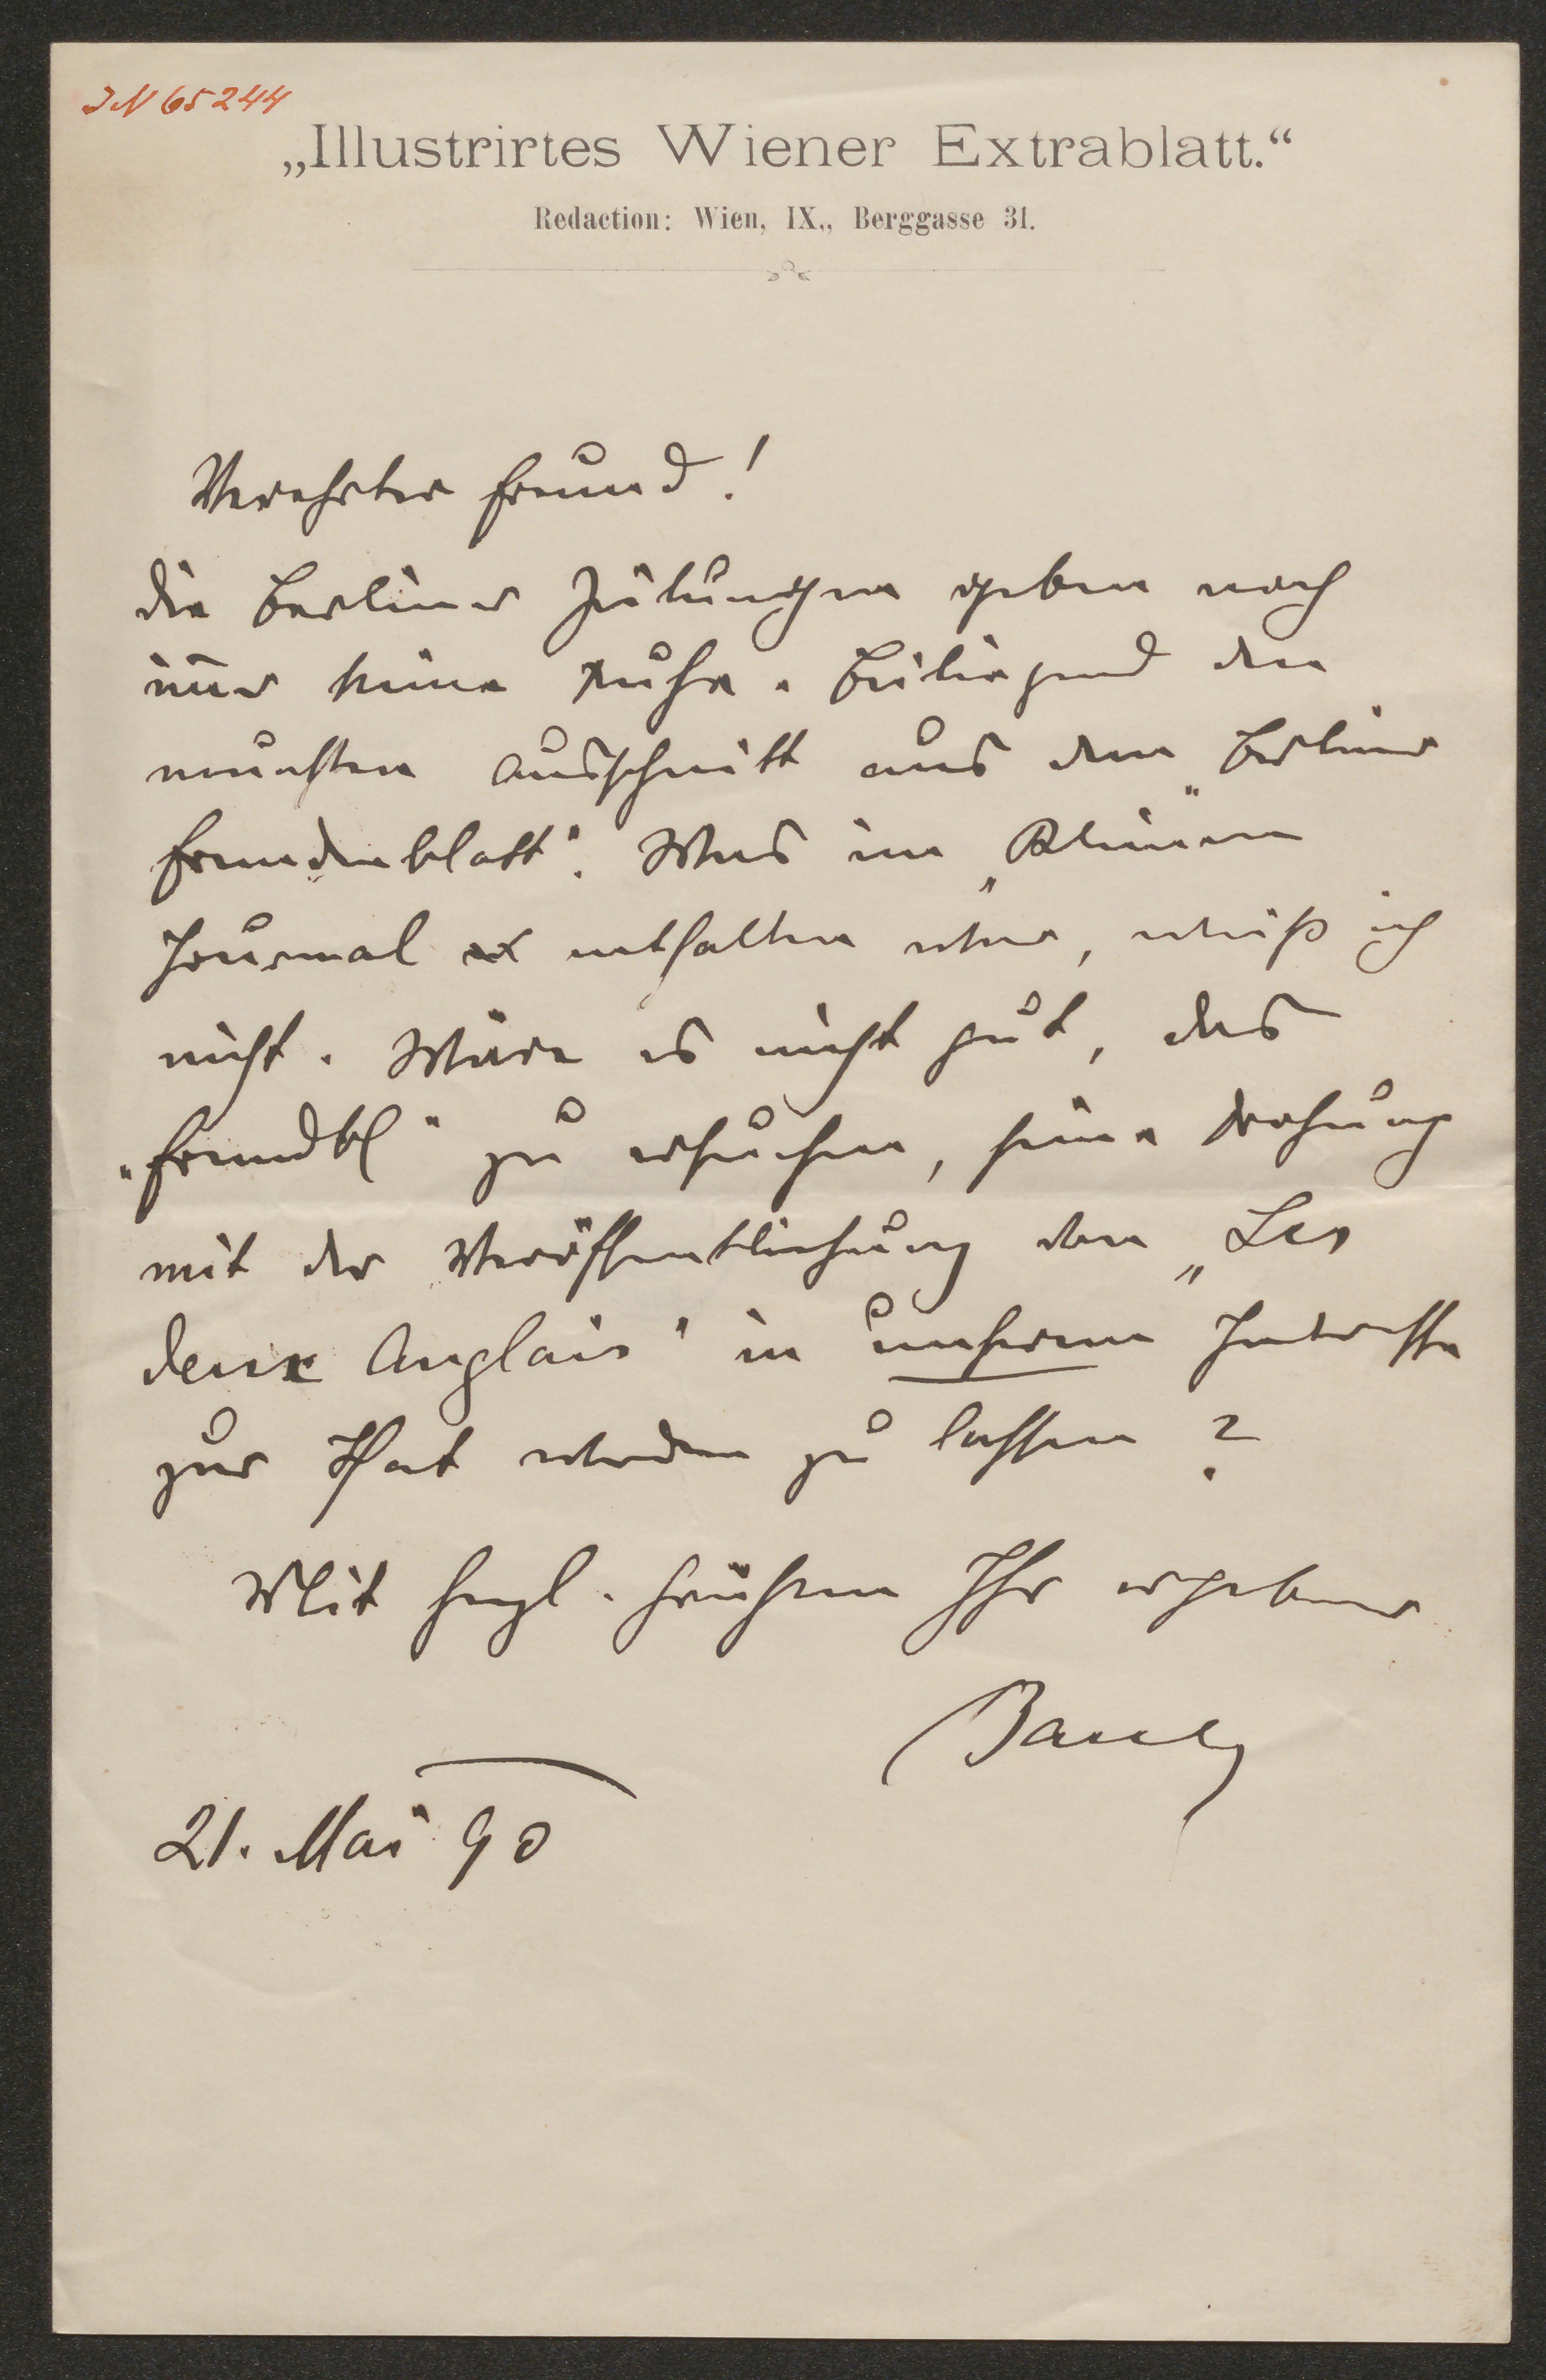 IN 65244
„Illustrirtes Wiener Extrablatt.“
Redaction: Wien, IX., Berggasse 31.
Verehrter Freund!
die Berliner Zeitungen geben noch
im̅er keine Ruhe. Beiliegend den
neuesten Ausschnitt aus dem „Berliner
Fremdenblatt“. Was im „Kleinen
Journal enthalten war, weiß ich
nicht. Wäre es nicht gut, das
„Fremdbl“ zu ersuchen, seine Drohung
mit der Veröffentlichung von „Les
deux Anglais“ in unserem Interesse
zur That werden zu lassen?
Mit herzl. Grüßen Ihr ergebener
21. Mai 90